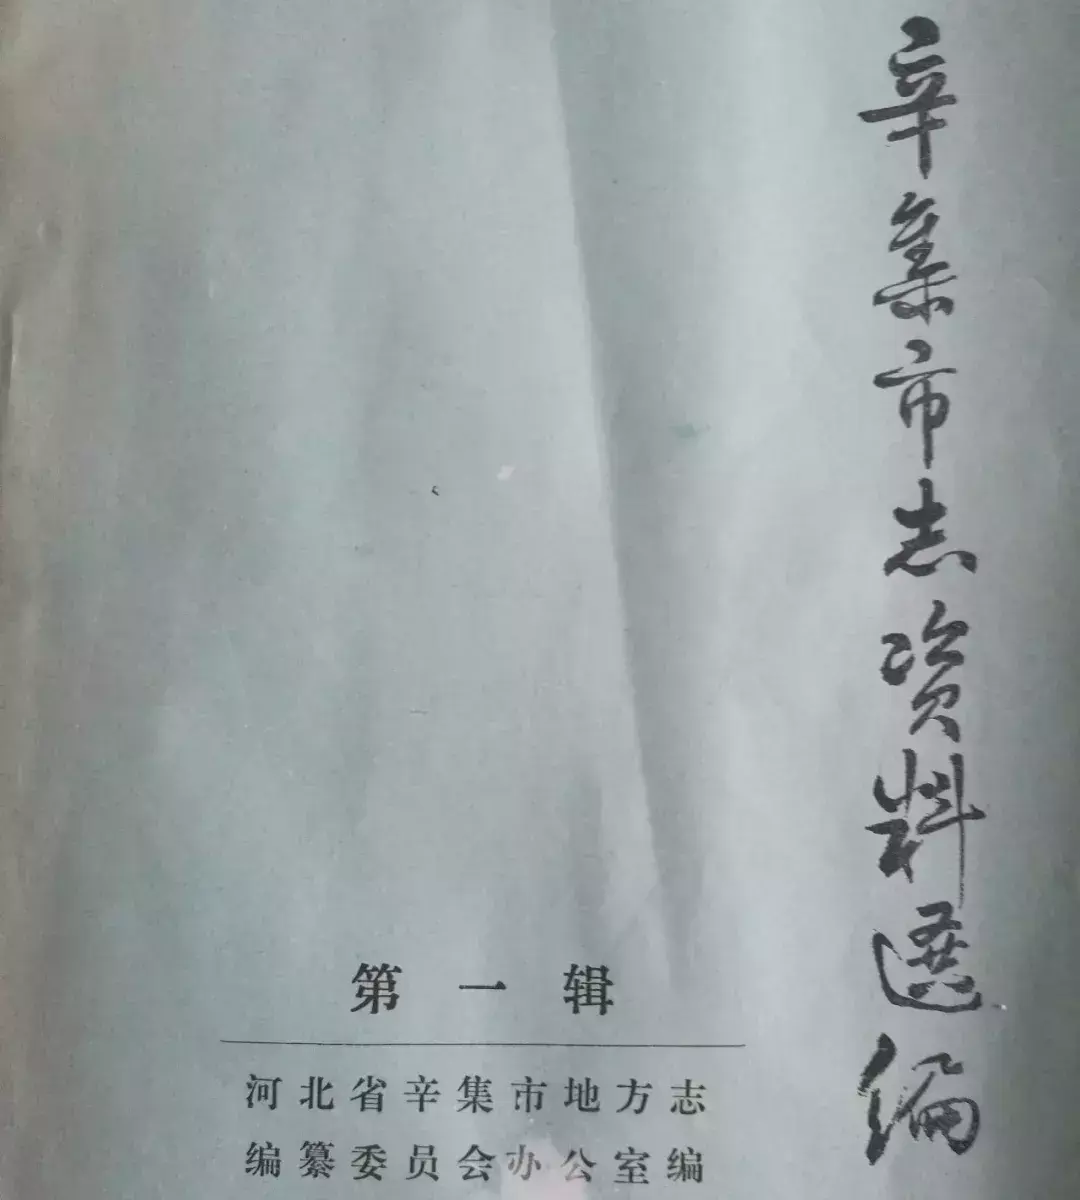 辛集市志资料選编
第一辑
河北省辛集市地方志
编纂委员会办公室编